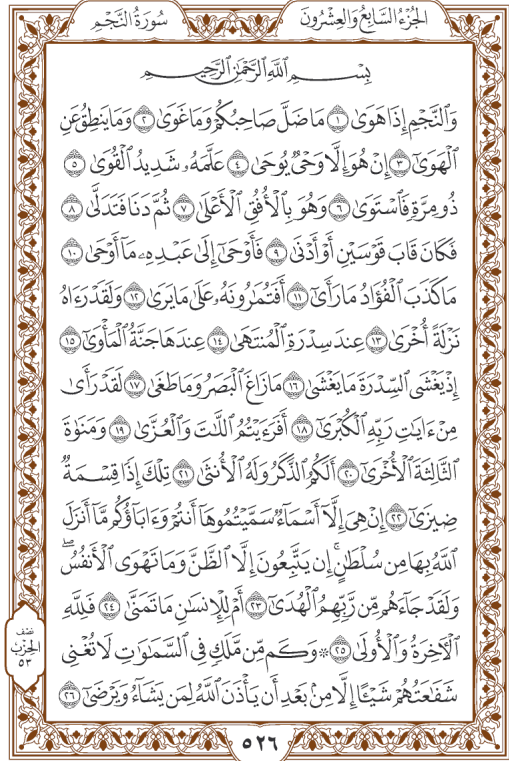 سُورَةُ النَّجْمِ
الجُزْءُ السَّابِعُ وَالعِشْرُونَ
بِسْمِ اللَّهِ الرَّحْمَٰنِ الرَّحِيمِ
وَالنَّجْمِ إِذَا هَوَىٰ ١ مَا ضَلَّ صَاحِبُكُمْ وَمَا غَوَىٰ ٢ وَمَا يَنطِقُ عَنِ
الْهَوَىٰٓ ٣ إِنْ هُوَ إِلَّا وَحْيٌ يُوحَىٰ ٤ عَلَّمَهُۥ شَدِيدُ الْقُوَىٰ ٥
ذُو مِرَّةٍ فَاسْتَوَىٰ ٦ وَهُوَ بِالْأُفُقِ الْأَعْلَىٰ ٧ ثُمَّ دَنَا فَتَدَلَّىٰ ٨
فَكَانَ قَابَ قَوْسَيْنِ أَوْ أَدْنَىٰ ٩ فَأَوْحَىٰٓ إِلَىٰ عَبْدِهِۦ مَآ أَوْحَىٰ ١٠
مَا كَذَبَ الْفُؤَادُ مَا رَأَىٰٓ ١١ أَفَتُمَٰرُونَهُۥ عَلَىٰ مَا يَرَىٰ ١٢ وَلَقَدْ رَءَاهُ
نَزْلَةً أُخْرَىٰ ١٣ عِندَ سِدْرَةِ الْمُنتَهَىٰ ١٤ عِندَهَا جَنَّةُ الْمَأْوَىٰٓ ١٥
إِذْ يَغْشَى السِّدْرَةَ مَا يَغْشَىٰ ١٦ مَا زَاغَ الْبَصَرُ وَمَا طَغَىٰ ١٧ لَقَدْ رَأَىٰ
مِنْ ءَايَٰتِ رَبِّهِ الْكُبْرَىٰٓ ١٨ أَفَرَءَيْتُمُ اللَّٰتَ وَالْعُزَّىٰ ١٩ وَمَنَوٰةَ
الثَّالِثَةَ الْأُخْرَىٰٓ ٢٠ أَلَكُمُ الذَّكَرُ وَلَهُ الْأُنثَىٰ ٢١ تِلْكَ إِذًا قِسْمَةٌ
ضِيزَىٰٓ ٢٢ إِنْ هِيَ إِلَّآ أَسْمَآءٌ سَمَّيْتُمُوهَآ أَنتُمْ وَءَابَآؤُكُم مَّآ أَنزَلَ
اللَّهُ بِهَا مِن سُلْطَٰنٍ ۚ إِن يَتَّبِعُونَ إِلَّا الظَّنَّ وَمَا تَهْوَى الْأَنفُسُ ۖ
وَلَقَدْ جَآءَهُم مِّن رَّبِّهِمُ الْهُدَىٰٓ ٢٣ أَمْ لِلْإِنسَٰنِ مَا تَمَنَّىٰ ٢٤ فَلِلَّهِ
الْءَاخِرَةُ وَالْأُولَىٰ ٢٥ ۞ وَكَم مِّن مَّلَكٍ فِي السَّمَٰوَٰتِ لَا تُغْنِي
شَفَٰعَتُهُمْ شَيْـًٔا إِلَّا مِنۢ بَعْدِ أَن يَأْذَنَ اللَّهُ لِمَن يَشَآءُ وَيَرْضَىٰٓ ٢٦
نصف
الحزب
٥٣
٥٢٦